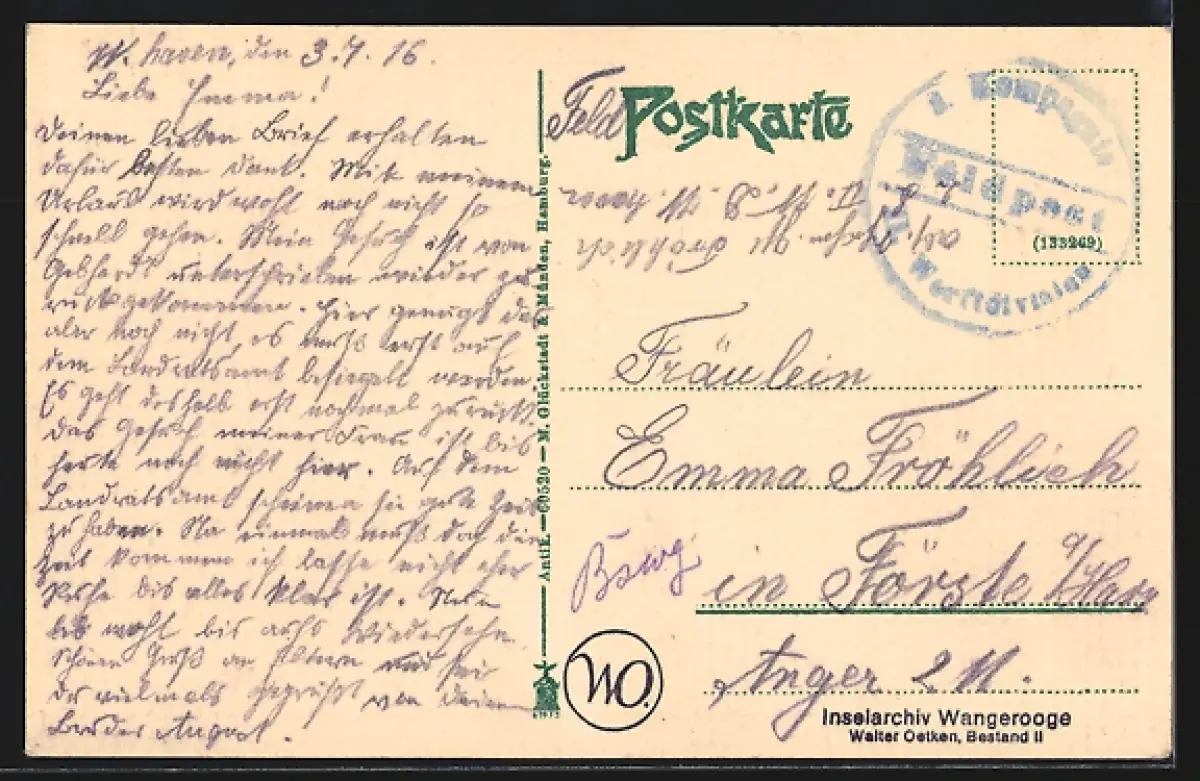 W. haven, den 3.7.16.
Liebe Emma!
Deinen lieben Brief erhalten
dafür besten Dank. Mit meinem
Urlaub wird wohl noch nicht so
schnell gehen. Mein Gesuch ist von
Gebhardt unterschrieben wieder zu
rückgekommen. Hier genügt das
aber noch nicht, es muß erst auf
dem Landratsamt besiegelt werden.
Es geht deshalb erst nochmal zurück.
Das Gesuch meiner Frau ist bis
heute noch nicht hier. Auf dem
Landratsamt scheinen sie gute Zeit
zu haben. Na einmal muß doch die
Zeit kommen ich lasse nicht eher
Ruhe bis alles klar ist. Nun
leb wohl bis aufs Wiedersehn.
Schönen Gruß an Eltern und sei
Du vielmals gegrüßt von Deinem
Bruder August.
Antik.—60520—M. Glückstadt & Münden, Hamburg.
Feld Postkarte
Kompagnie
Feldpost
II. Werftdivision
(133249)
Fräulein
Emma Fröhlich
in Förste a/Harz
Bswg
Anger 2 M.
WO.
Inselarchiv Wangerooge
Walter Oetken, Bestand II